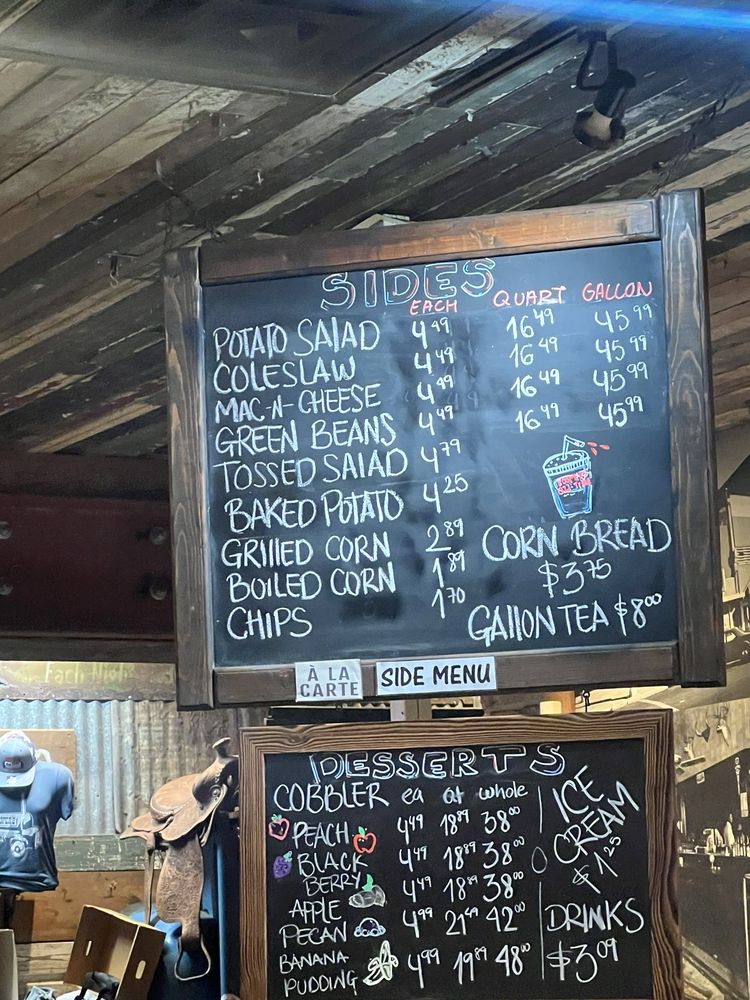 SIDES
EACH QUART GALLON
POTATO SALAD 4.49 16.49 45.99
COLESLAW 4.49 16.49 45.99
MAC-N-CHEESE 4.49 16.49 45.99
GREEN BEANS 4.49 16.49 45.99
TOSSED SALAD 4.79
BAKED POTATO 4.25
GRILLED CORN 2.89
BOILED CORN 1.89
CHIPS 1.70
CORN BREAD
$3.75
GALLON TEA $8.00
À LA
CARTE
SIDE MENU
DESSERTS
COBBLER ea qt whole
PEACH 4.49 18.89 38.00
BLACK
BERRY 4.49 18.89 38.00
APPLE 4.49 18.89 38.00
PECAN 4.99 21.49 42.00
BANANA
PUDDING 4.99 19.89 48.00
ICE
CREAM
$1.25
DRINKS
$3.09